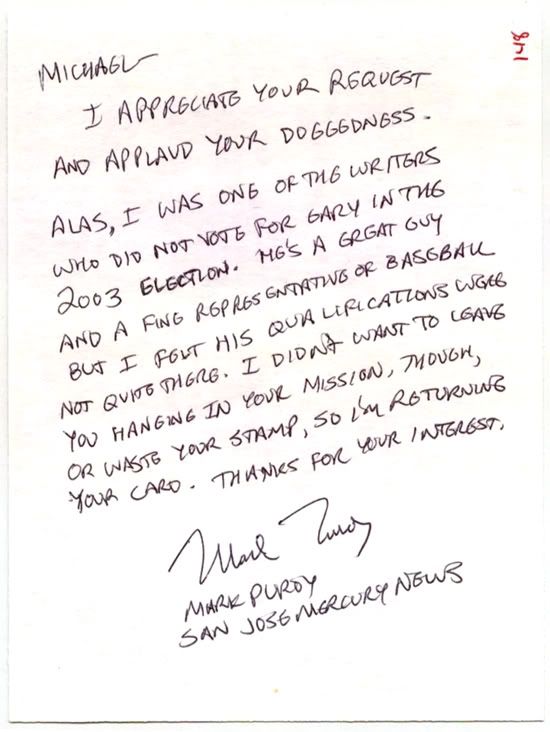 148
MICHAEL—
I APPRECIATE YOUR REQUEST
AND APPLAUD YOUR DOGGEDNESS.
ALAS, I WAS ONE OF THE WRITERS
WHO DID NOT VOTE FOR GARY IN THE
2003 ELECTION. HE'S A GREAT GUY
AND A FINE REPRESENTATIVE OF BASEBALL
BUT I FELT HIS QUALIFICATIONS WERE
NOT QUITE THERE. I DIDN'T WANT TO LEAVE
YOU HANGING IN YOUR MISSION, THOUGH,
OR WASTE YOUR STAMP, SO I'M RETURNING
YOUR CARD. THANKS FOR YOUR INTEREST.
Mark Purdy
MARK PURDY
SAN JOSE MERCURY NEWS